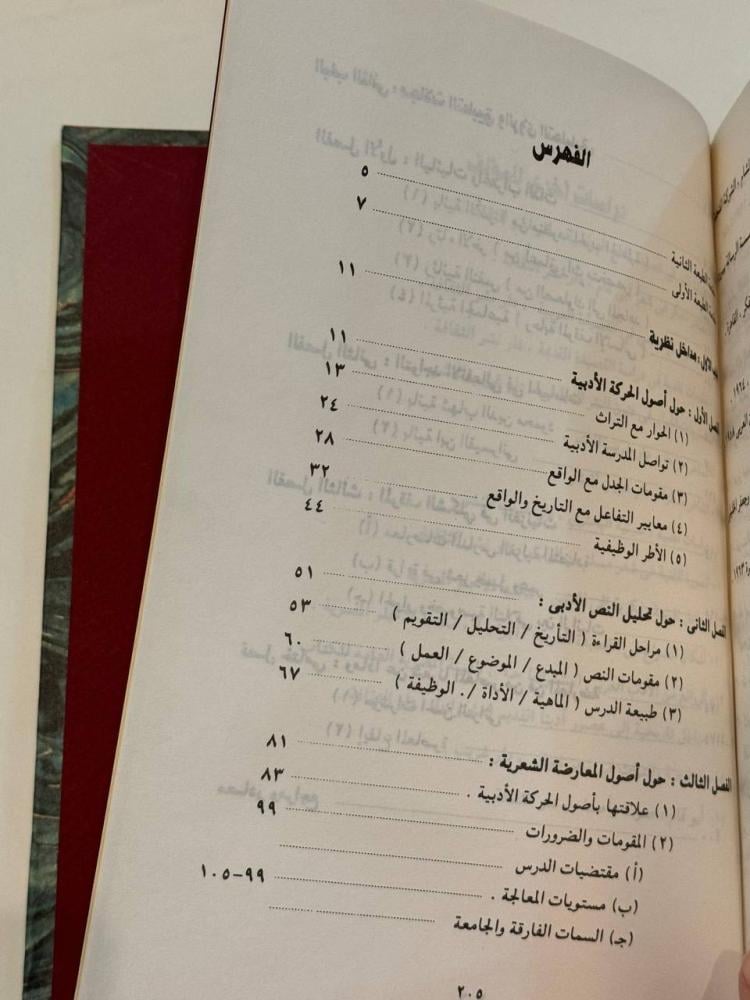 الفهرس
الطبعة الثانية ٥
الطبعة الأولى ٧
الأول : مداخل نظرية ١١
الفصل الأول : حول أصول الحركة الأدبية ١١
(١) الحوار مع التراث ١٣
(٢) تواصل المدرسة الأدبية ٢٤
(٣) مقومات الجدل مع الواقع ٢٨
(٤) معايير التفاعل مع التاريخ والواقع ٣٢
(٥) الأطر الوظيفية ٤٤
الفصل الثانى : حول تحليل النص الأدبى : ٥١
(١) مراحل القراءة ( التأريخ / التحليل / التقويم ) ٥٣
(٢) مقومات النص ( المبدع / الموضوع / العمل ) ٦٠
(٣) طبيعة الدرس ( الماهية / الأداة /. الوظيفة ) ٦٧
الفصل الثالث : حول أصول المعارضة الشعرية : ٨١
(١) علاقتها بأصول الحركة الأدبية . ٨٣
(٢) المقومات والضرورات ٩٩
(أ) مقتضيات الدرس
(ب) مستويات المعالجة . ٩٩-١٠٥
(جـ) السمات الفارقة والجامعة
٢٠٥